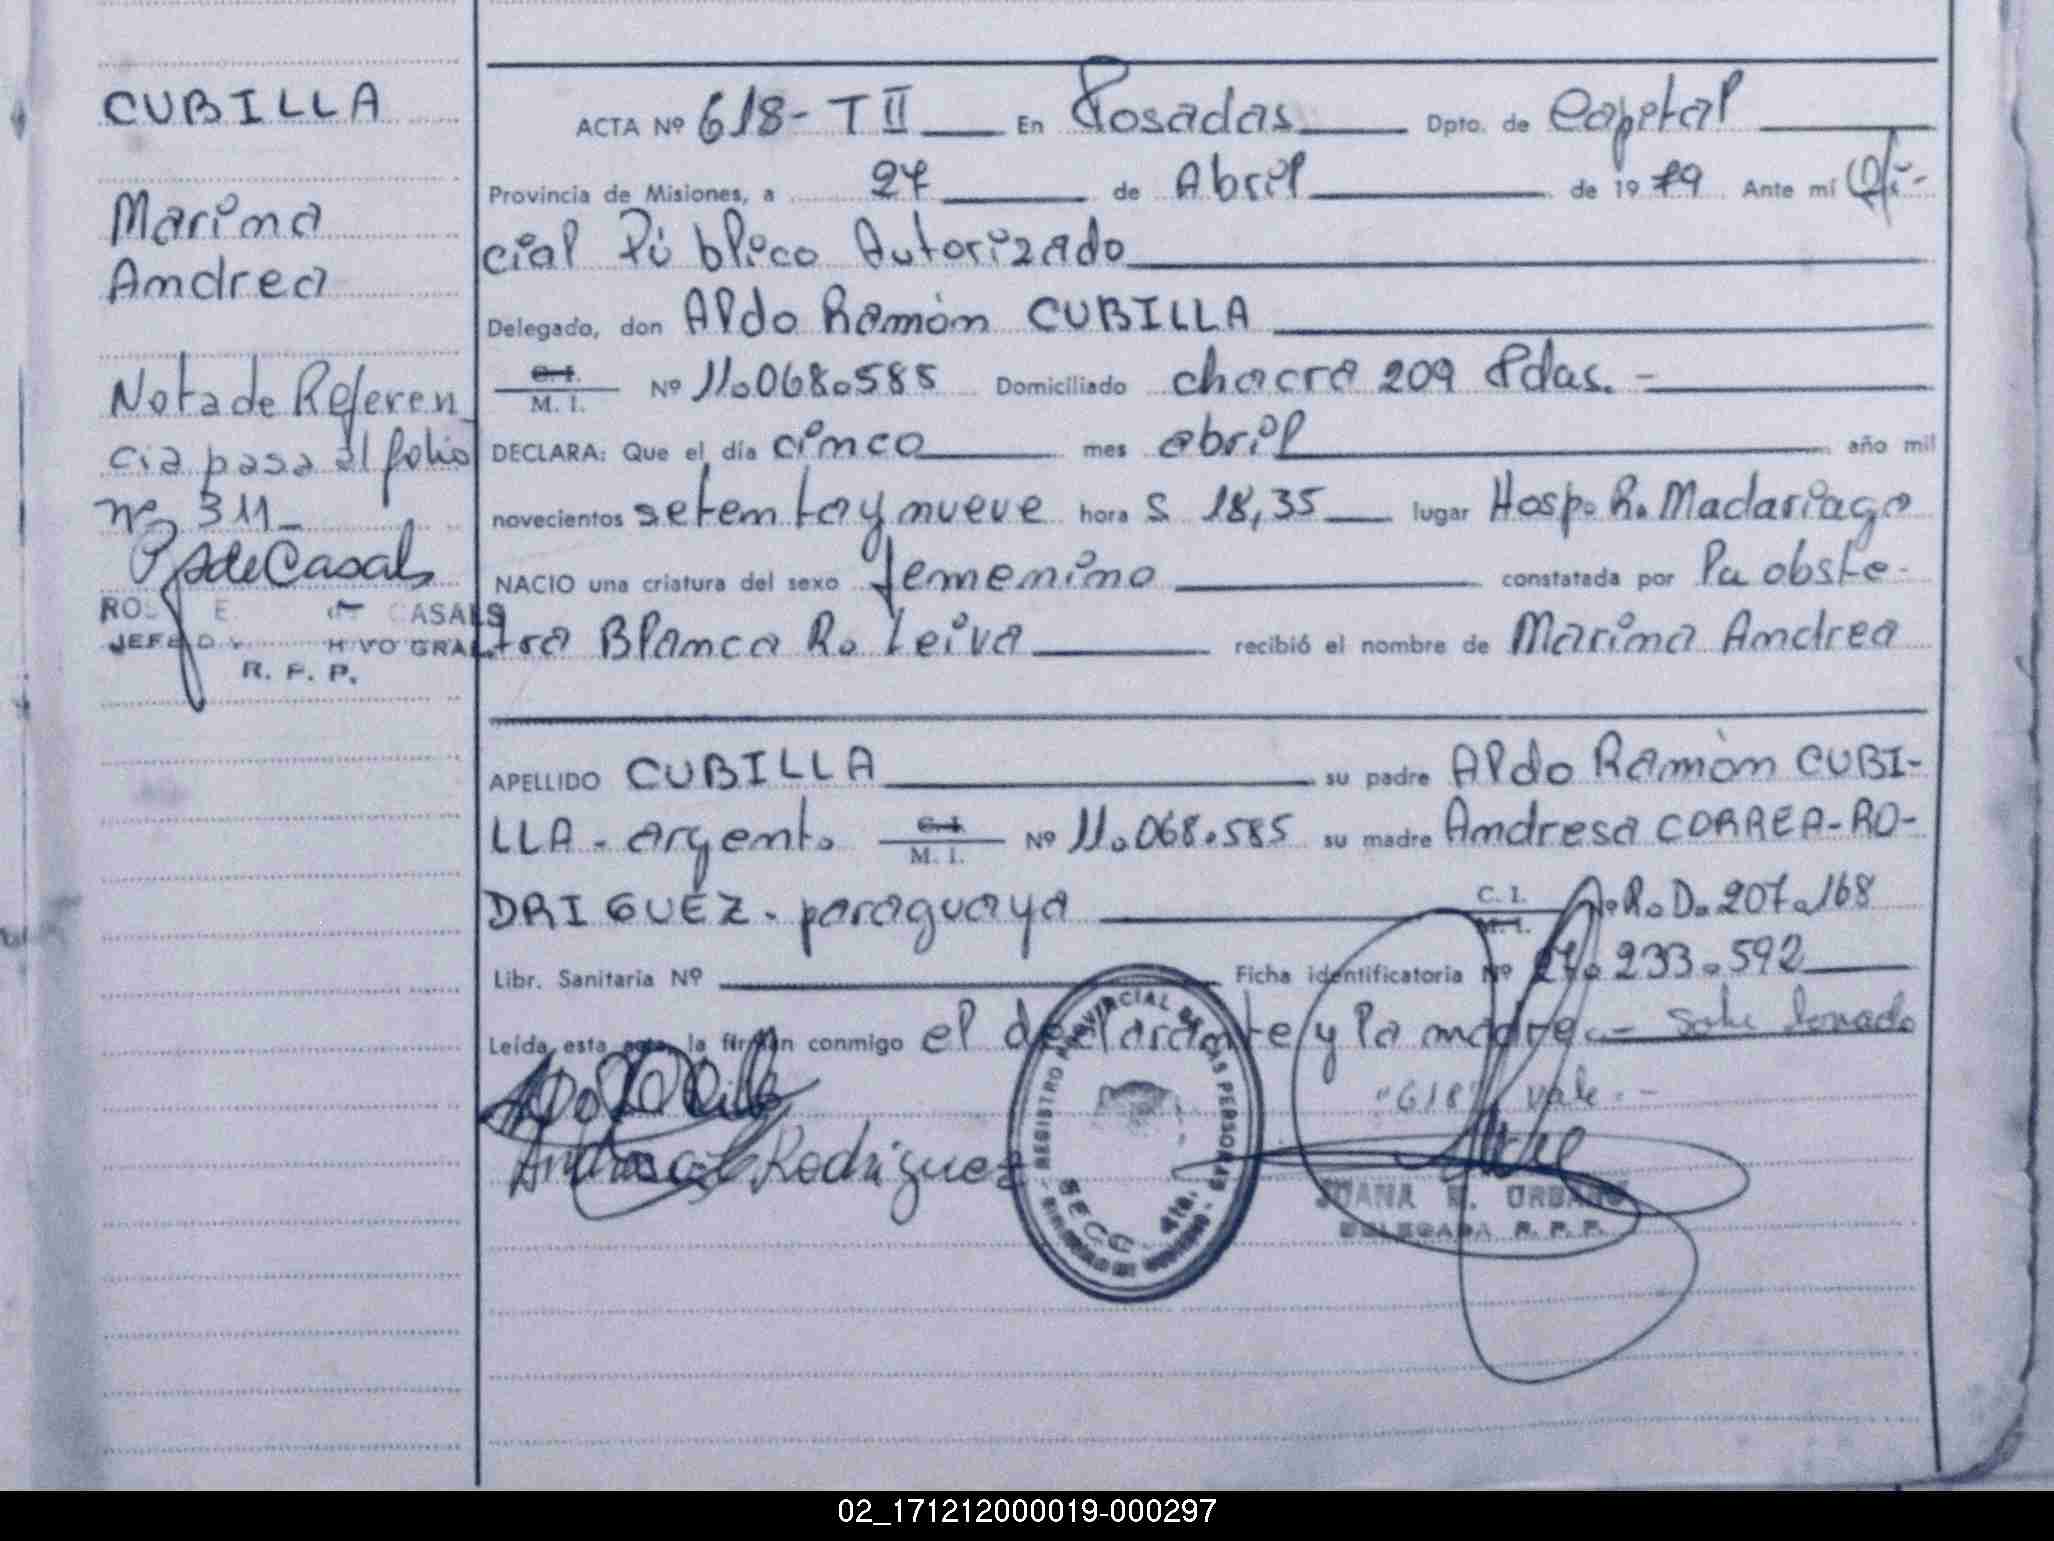 CUBILLA
Marina
Andrea
Nota de Referen
cia pasa al folio
nº 311_
R. de Casals
CASALS
R. F. P.
ACTA Nº 618-TII En Posadas Dpto. de Capital
Provincia de Misiones, a 27 de Abril de 1979 Ante mí Ofi-
cial Público Autorizado
Delegado, don Aldo Ramón CUBILLA
C. I.
M. I. Nº 11.068.585 Domiciliado chacra 209 Pdas.-
DECLARA: Que el día cinco mes abril año mil
novecientos setenta y nueve hora s 18,35 lugar Hosp. R. Madariaga
NACIO una criatura del sexo femenino constatada por la obste-
tra Blanca R. Leiva recibió el nombre de Marina Andrea
APELLIDO CUBILLA su padre Aldo Ramón CUBI-
LLA - argent. C. I. M. I. Nº 11.068.585 su madre Andresa CORREA-RO-
DRIGUEZ - paraguaya C. I. M. I. A.R.D. 207.168
Libr. Sanitaria Nº Ficha identificatoria Nº 27.233.592
Leída esta acta, la firman conmigo el declarante y la madre.- Sobre borrado
"618" vale.-
Andresa C Rodriguez
REGISTRO PROVINCIAL DE LAS PERSONAS
SECC. 4ta.
JUANA E. URBANO
DELEGADA R. P. P.
02_171212000019-000297